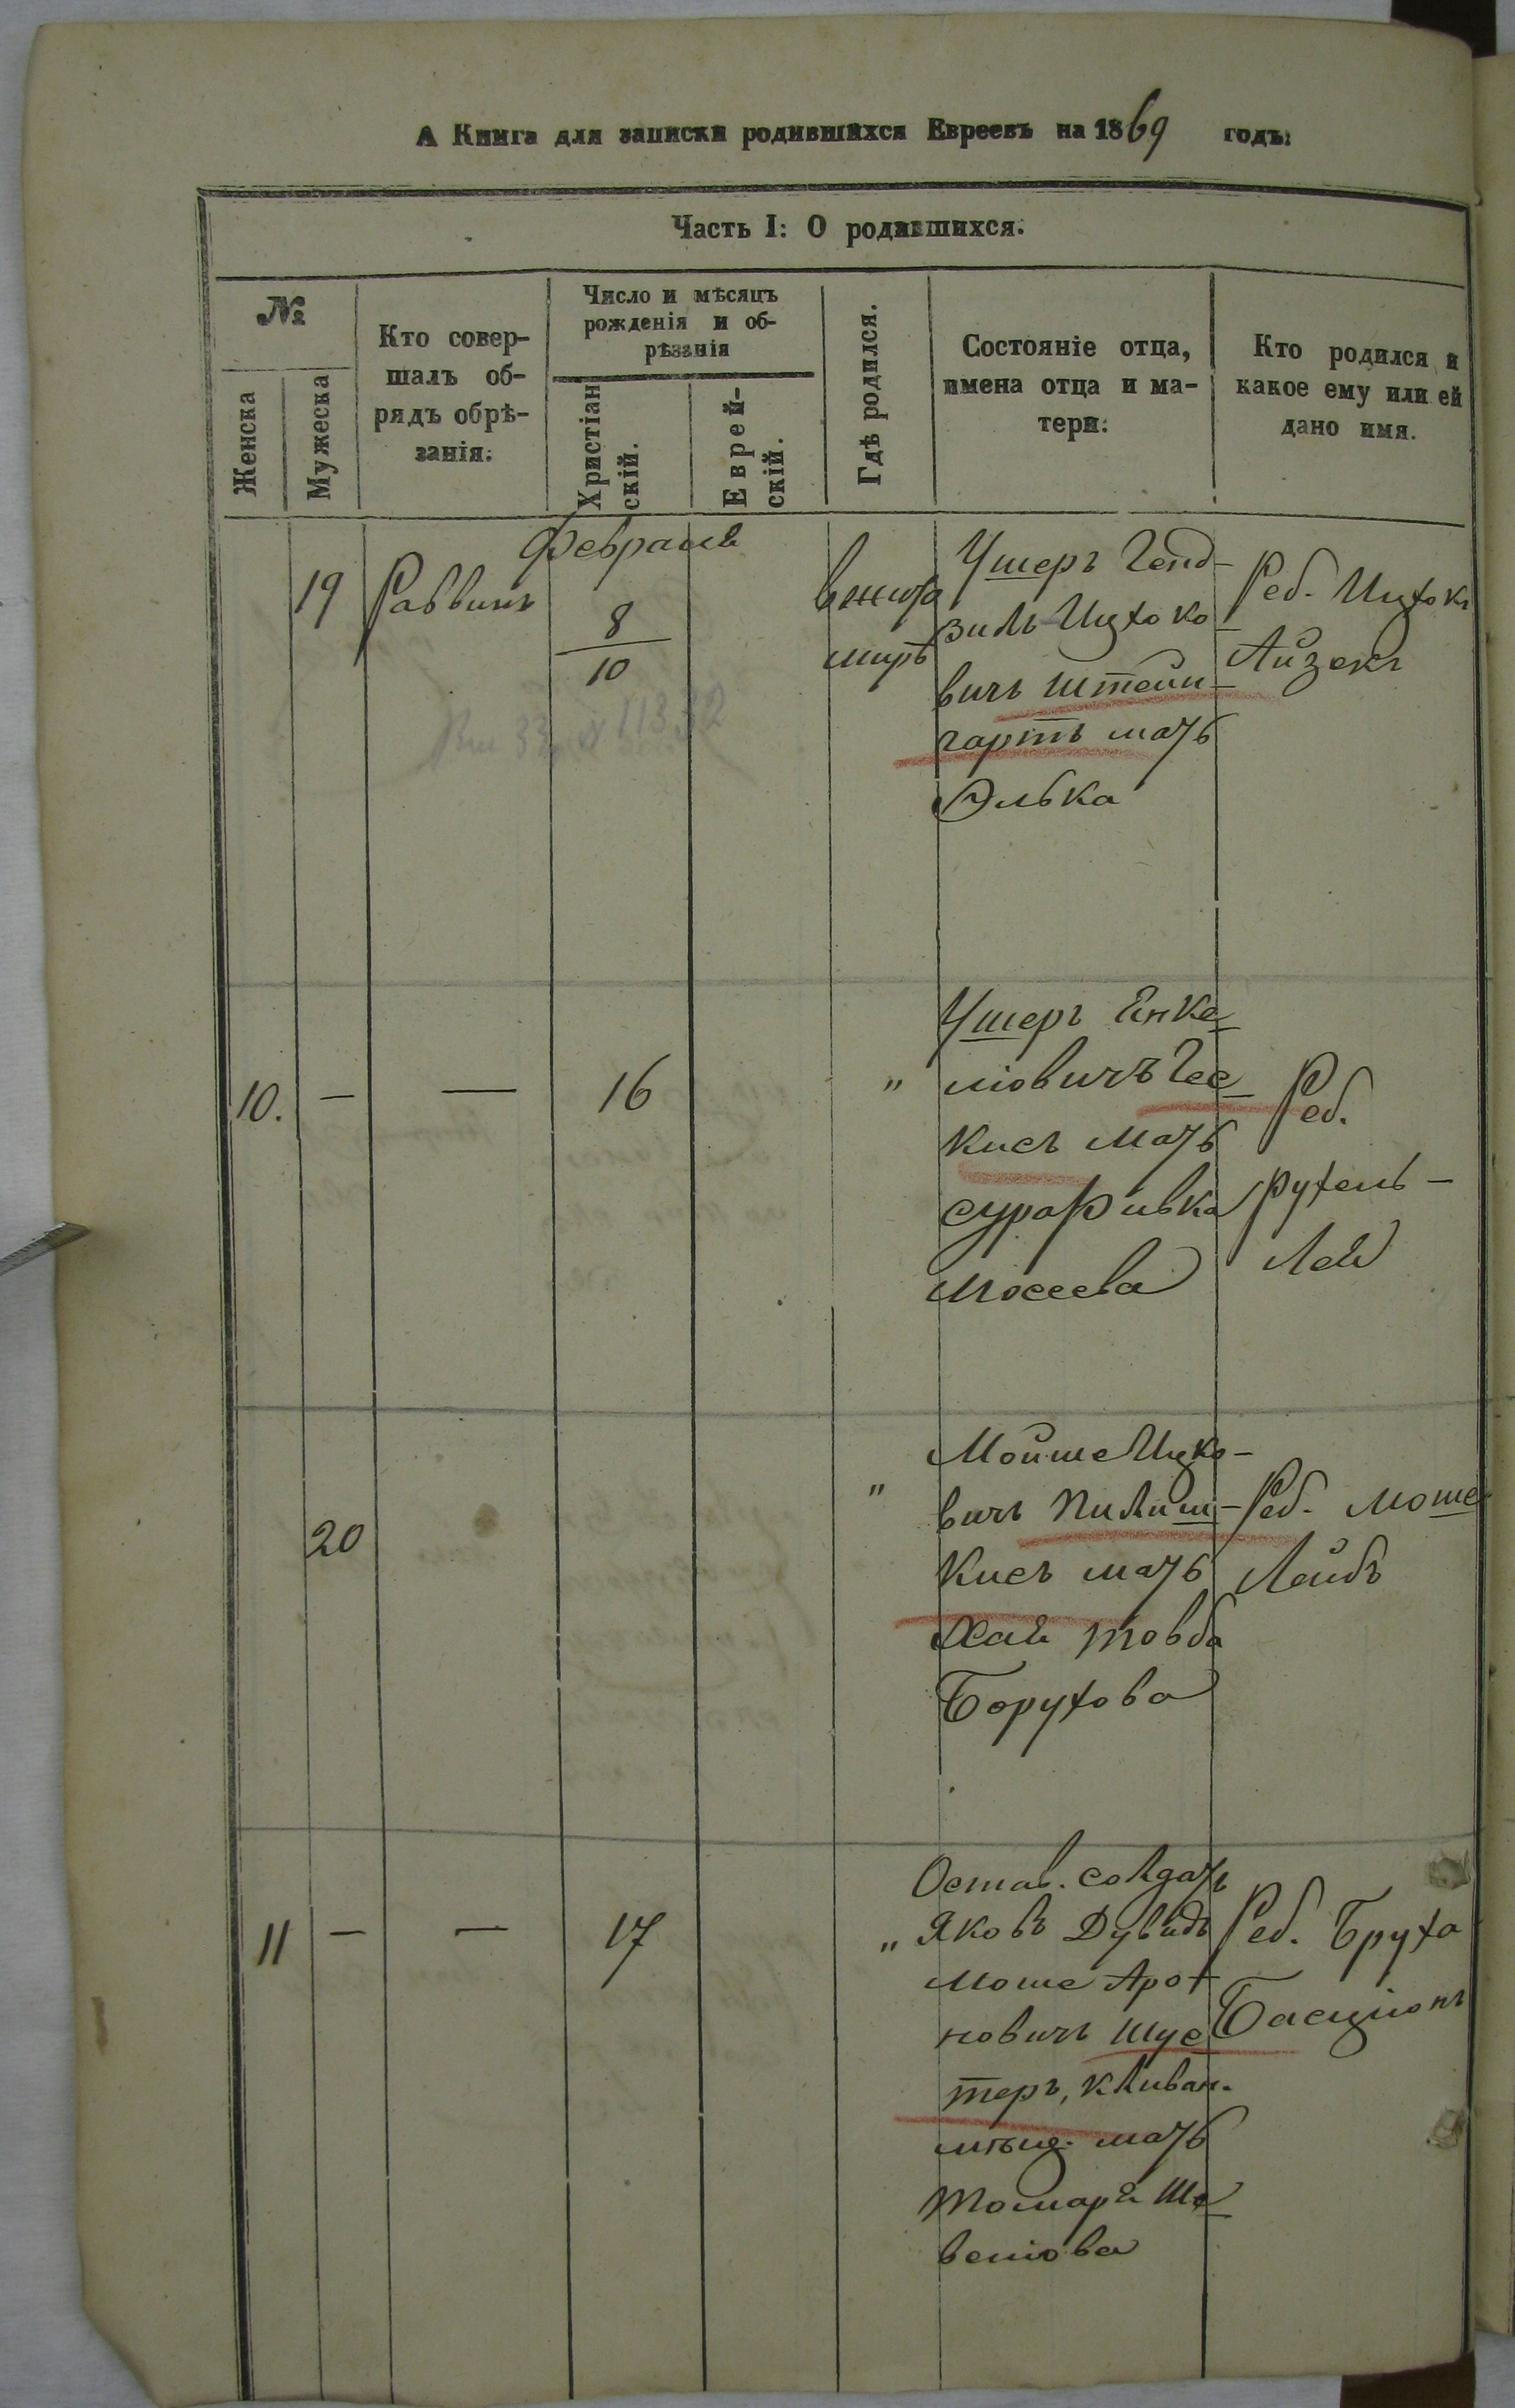 А Книга для записки родившихся Евреевъ на 1869 годъ:
Часть I: О родившихся.
№
Женска
Мужеска
Кто совер-
шалъ об-
рядъ обрѣ-
занія:
Число и мѣсяцъ
рожденія и об-
рѣзанія
Христіан
скій.
Еврей-
скій.
Гдѣ родился.
Состояніе отца,
имена отца и ма-
тери:
Кто родился и
какое ему или ей
дано имя.
Февраля
19
Раввинъ
8
10
вжито
миръ
Ушеръ
зиль Ицхоко
вичъ Штейн-
гартъ мать
Элька
Реб. Ицхокъ
Айзекъ
10.
—
—
16
"
Ушеръ Янке
ліовичъ Гес
кисъ мать
сура Ривка
Мосеева
Реб.
рухель-
Лея
20
"
Мойше Ицко-
вичъ Пилиш-
кисъ мать
Хая товба
Борухова
Реб. Моше
Лейбъ
11
—
—
17
"
Остав. солдатъ
Яковъ Дувидъ
Моше Аро-
новичъ Шус
теръ,
мѣщ. мать
Томаря Ше
веліова
Реб. Бруха
Басціонъ